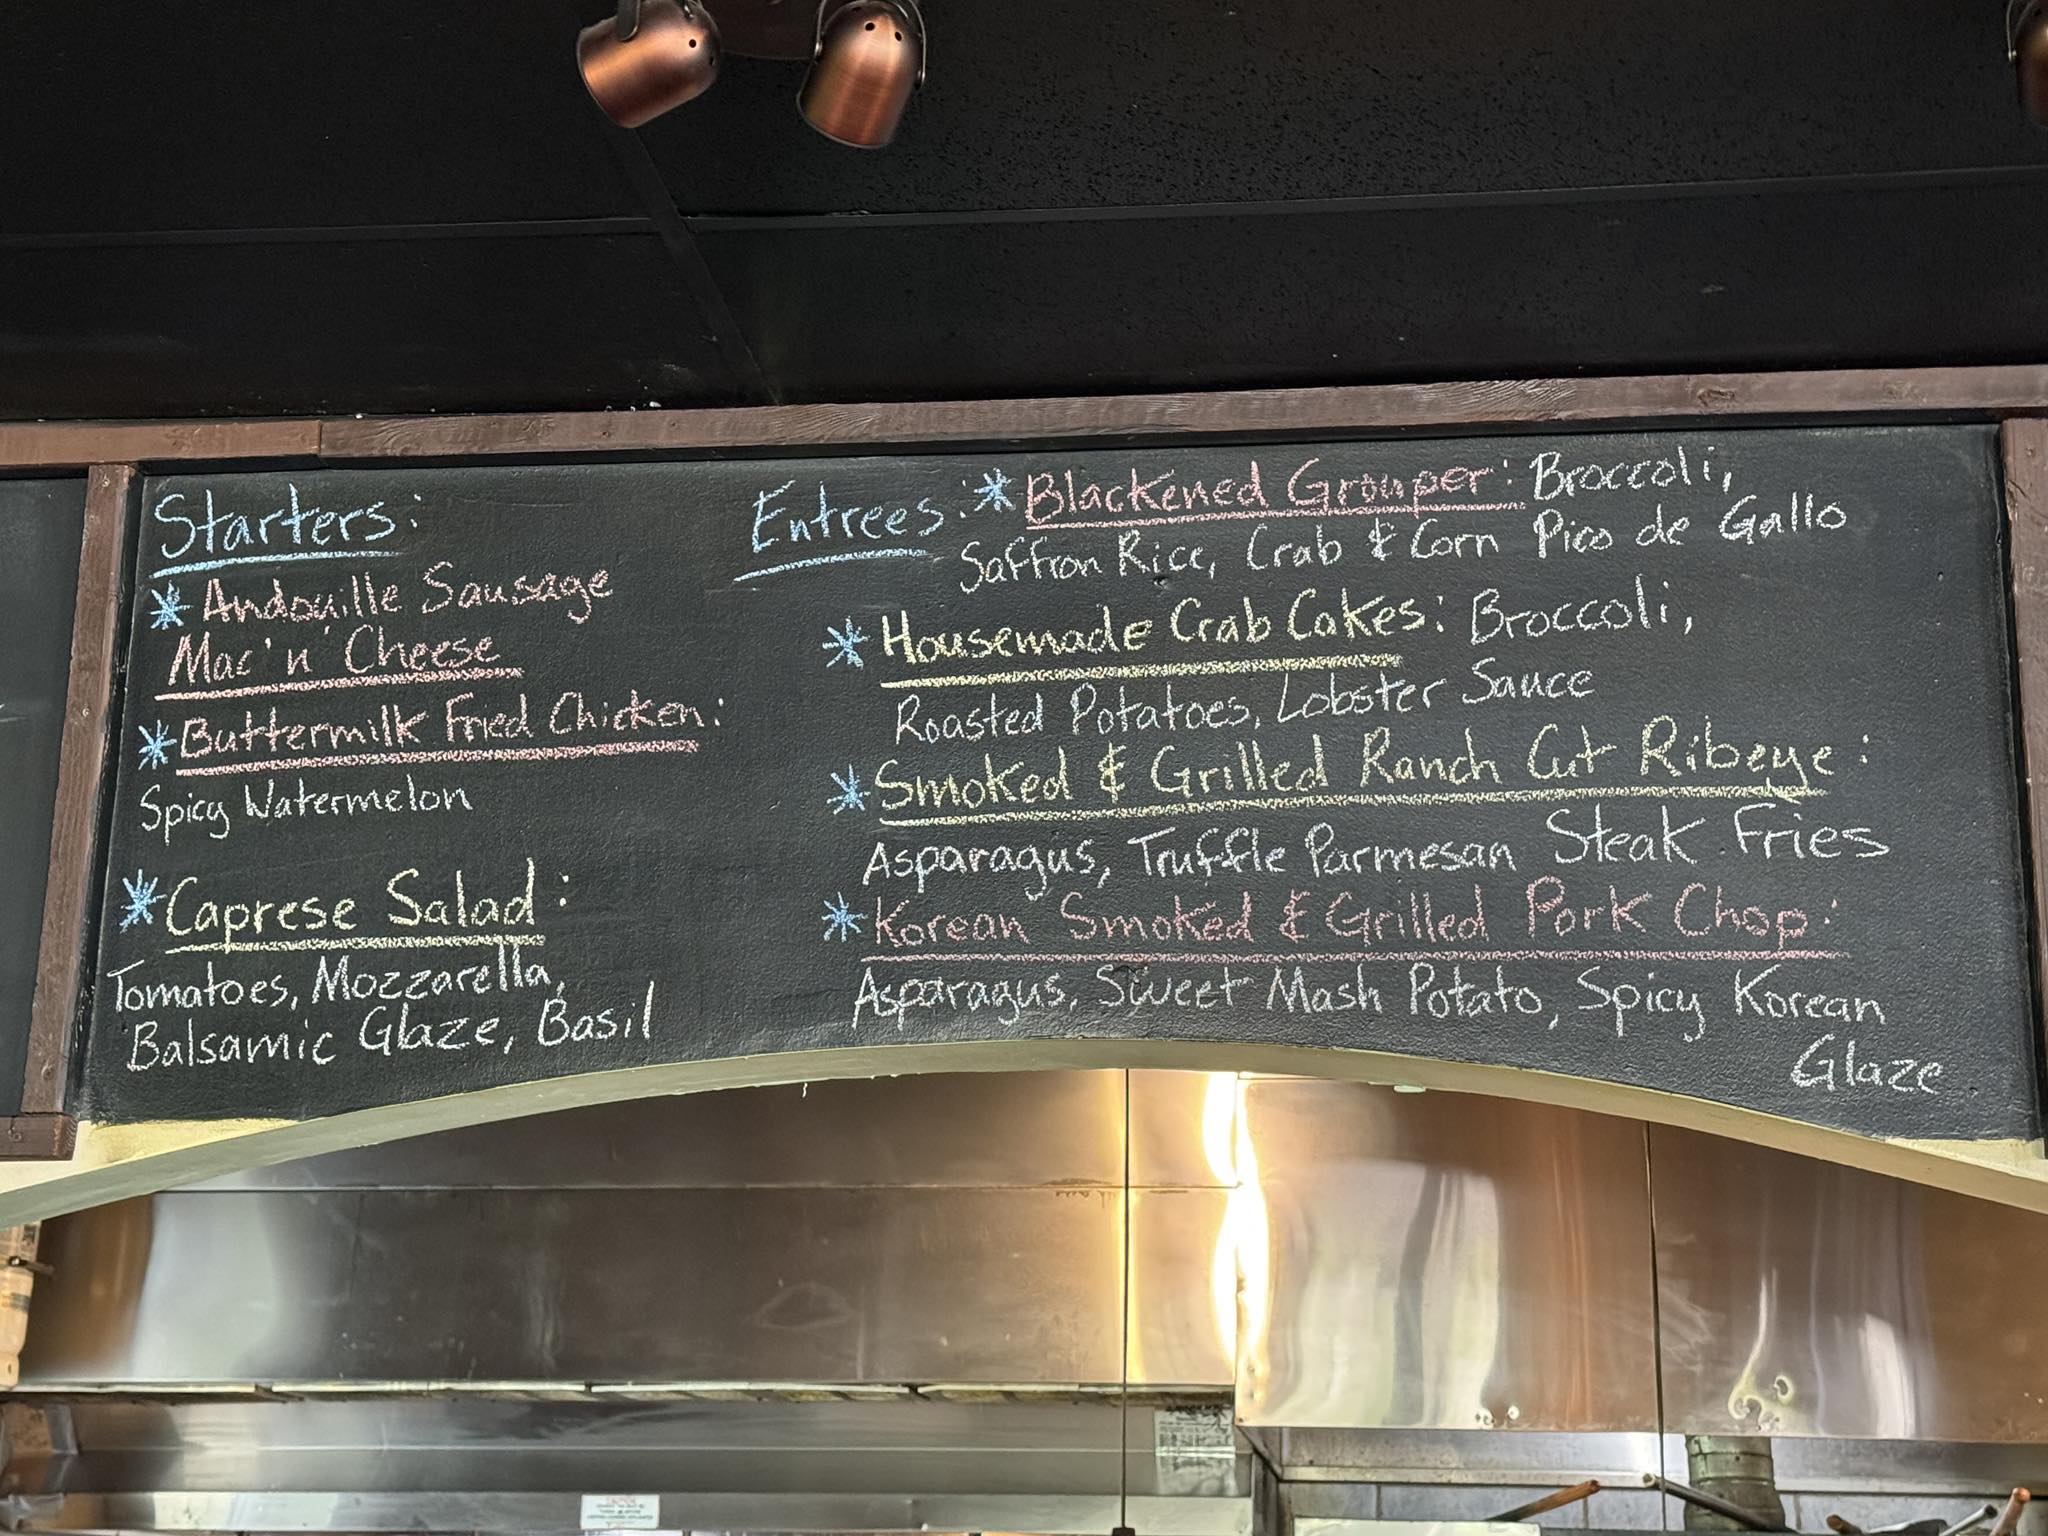 Starters:
* Andouille Sausage
Mac 'n' Cheese
* Buttermilk Fried Chicken:
Spicy Watermelon
* Caprese Salad:
Tomatoes, Mozzarella,
Balsamic Glaze, Basil
Entrees: * Blackened Grouper: Broccoli,
Saffron Rice, Crab & Corn Pico de Gallo
* Housemade Crab Cakes: Broccoli,
Roasted Potatoes, Lobster Sauce
* Smoked & Grilled Ranch Cut Ribeye:
Asparagus, Truffle Parmesan Steak Fries
* Korean Smoked & Grilled Pork Chop:
Asparagus, Sweet Mash Potato, Spicy Korean
Glaze